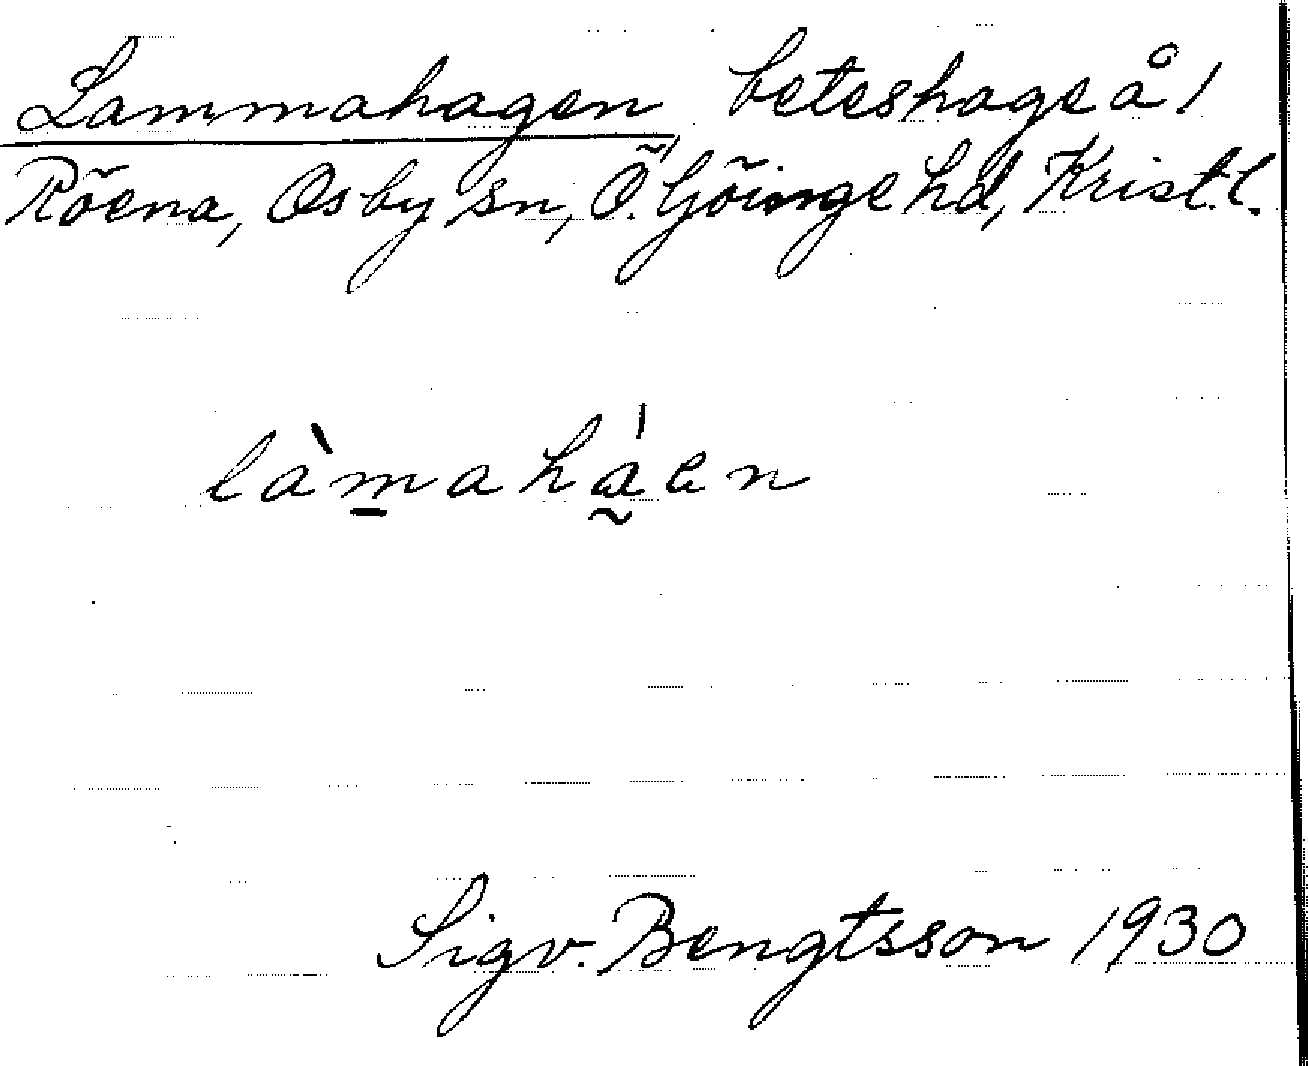 Lammahagen, beteshage å 1
Röena, Osby sn, Ö. Göinge hd, Krist.l.
làmaháen
Sigv. Bengtsson 1930